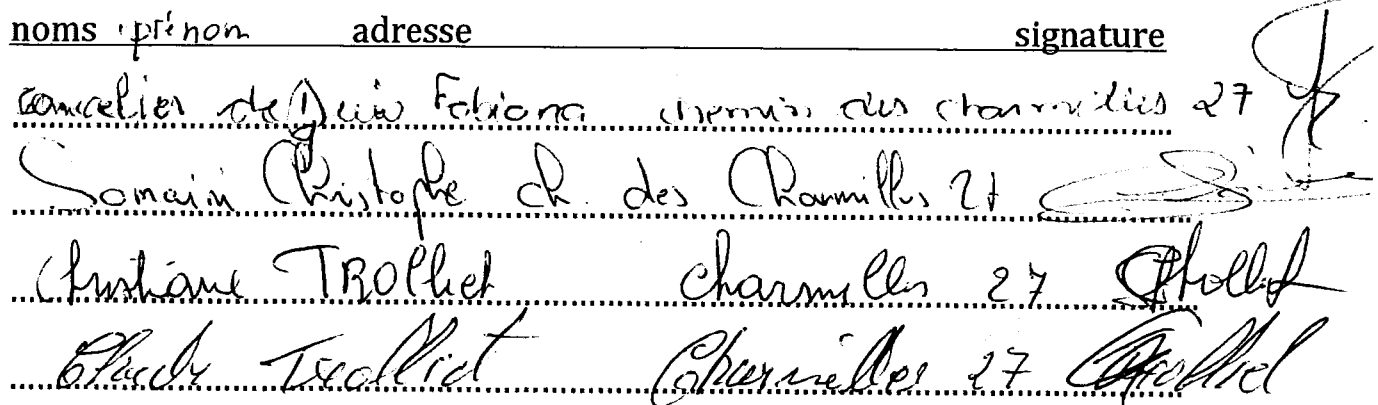 noms prénom adresse signature
Fabiana chemin des charmilles 27
Somain Christophe ch. des Charmilles 27
Christiane TROlliet Charmilles 27 CTrolliet
Claude Trolliet Charmilles 27 CTrolliet